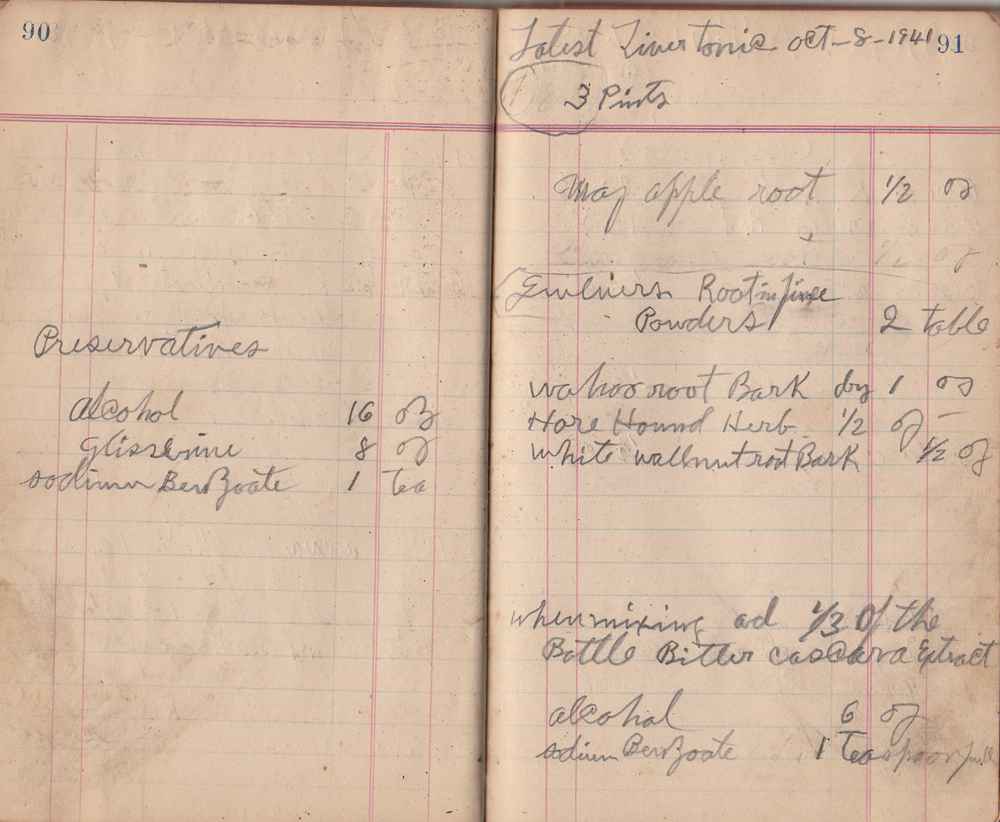 90
Preservatives
alcohol 16 oz
Glisserine 8 oz
sodium BenZoate 1 tea
Latest Liver Tonic oct-8-1941 91
3 Pints
May apple root 1/2 oz
Root in fine
Powders 2 table
wahoo root Bark dry 1 oz
Hore Hound Herb 1/2 oz
White wallnut root Bark 1/2 oz
when mixing ad 1/3 of the
Bottle Bitter cascara Extract
alcohol 6 oz
sodium BenZoate 1 Teaspoonfull